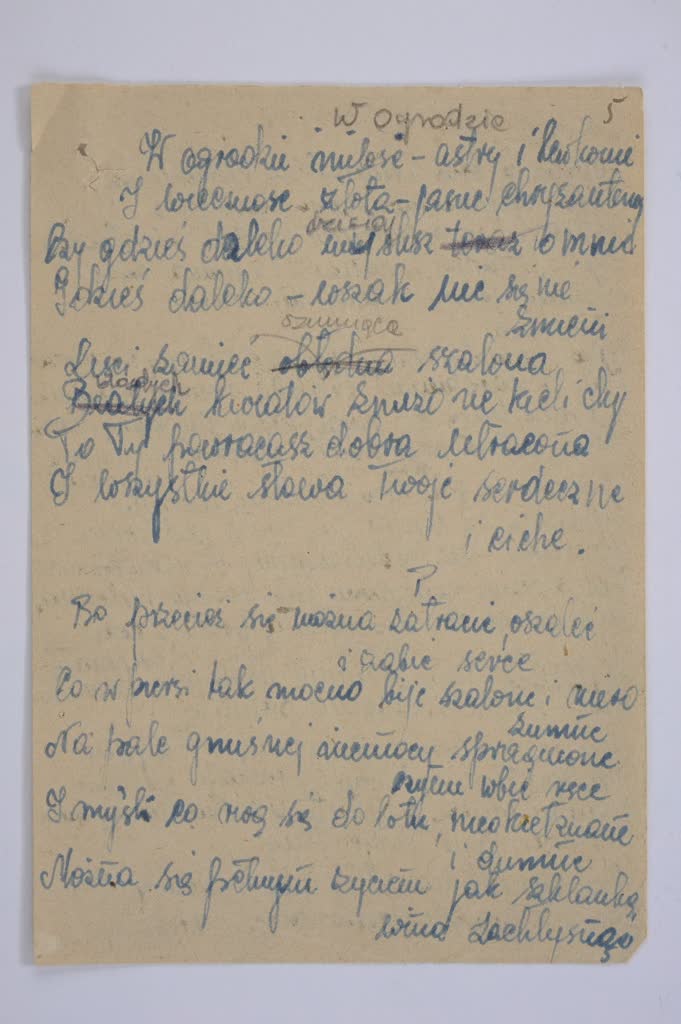 W Ogrodzie 5
W ogrodzie miłość – astry i lewkonie
I wieczność złota – jasne chryzantemy
dzisiaj
By gdzieś daleko myślisz teraz o mnie
Gdzieś daleko – wszak nic się nie
zmieni
szumiąca
Liści zamieć obłędna szalona
bladych
Białych kwiatów kielichy
To Ty powracasz dobra utracona
I wszystkie słowa Twoje serdeczne
i ciche.
Bo przecież się można zatracić, oszaleć
i zabić serce
Co w piersi tak mocno bije szalone i
dumne
Na pale gnuśnej niemocy spragnione
wbić ręce
I myśli co rwą się do lotu, nieokiełznane
i dumne
Można się pełnym życiem jak szklanką
wina zachłysnąć